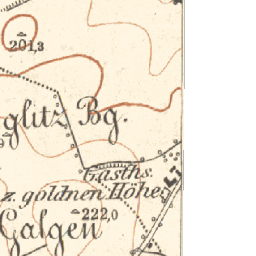 201,3
glitz Bg.
Gasths.
z. goldnen Höhe
222,0
Galgen